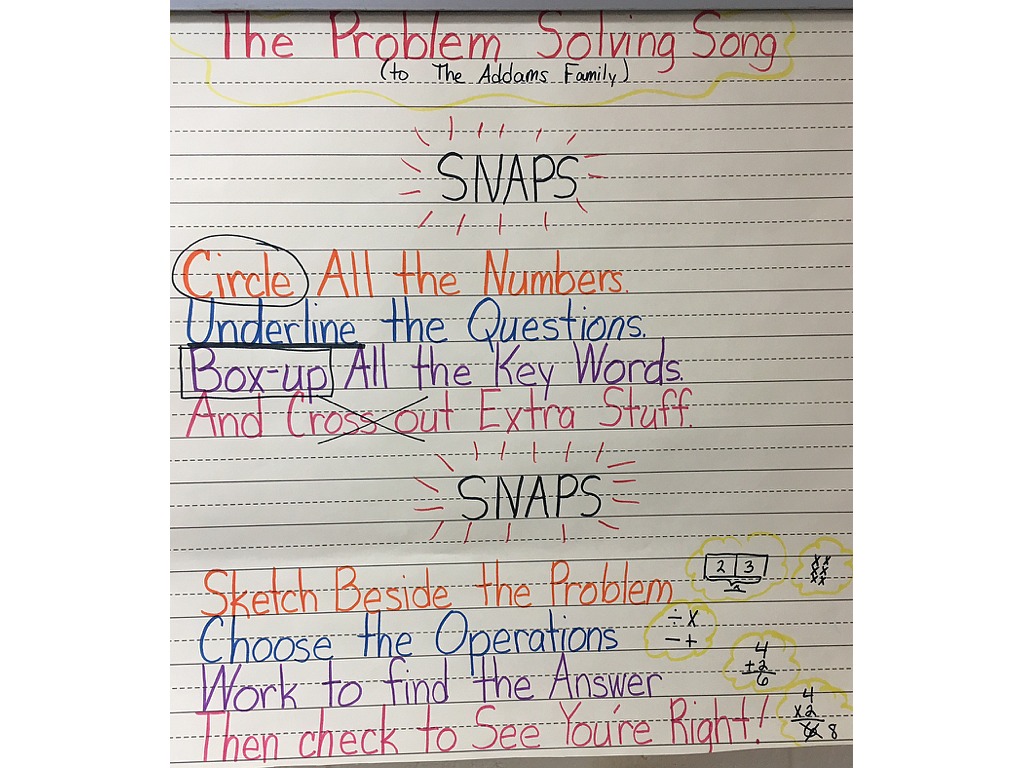 The Problem Solving Song
(to The Addams Family)
SNAPS
Circle All the Numbers.
Underline the Questions.
Box-up All the Key Words.
And Cross out Extra Stuff.
SNAPS
Sketch Beside the Problem
2 3
Choose the Operations
÷ x
- +
Work to find the Answer
4
+2
6
Then check to See You're Right!
4
x2
8